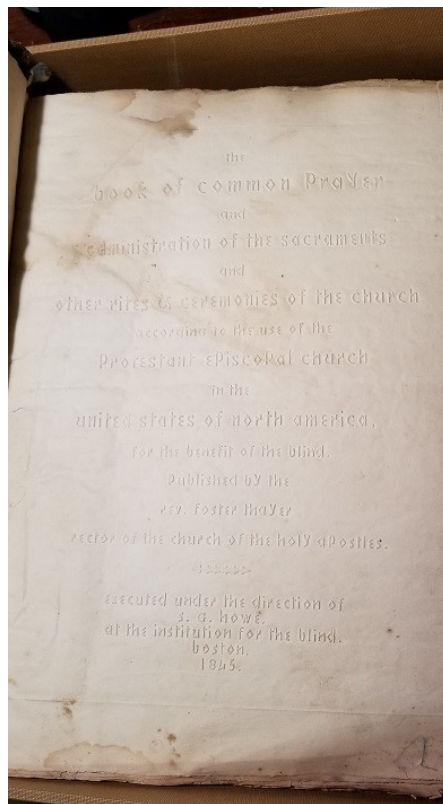 the
book of common Prayer
and
administration of the sacraments
and
other rites & ceremonies of the church
according to the use of the
Protestant ePiscoPal church
in the
united states of north america,
for the benefit of the blind.
Published by the
rev. foster thayer
rector of the church of the holy aPostles.
executed under the direction of
s. g. howe.
at the institution for the blind.
boston.
1845.